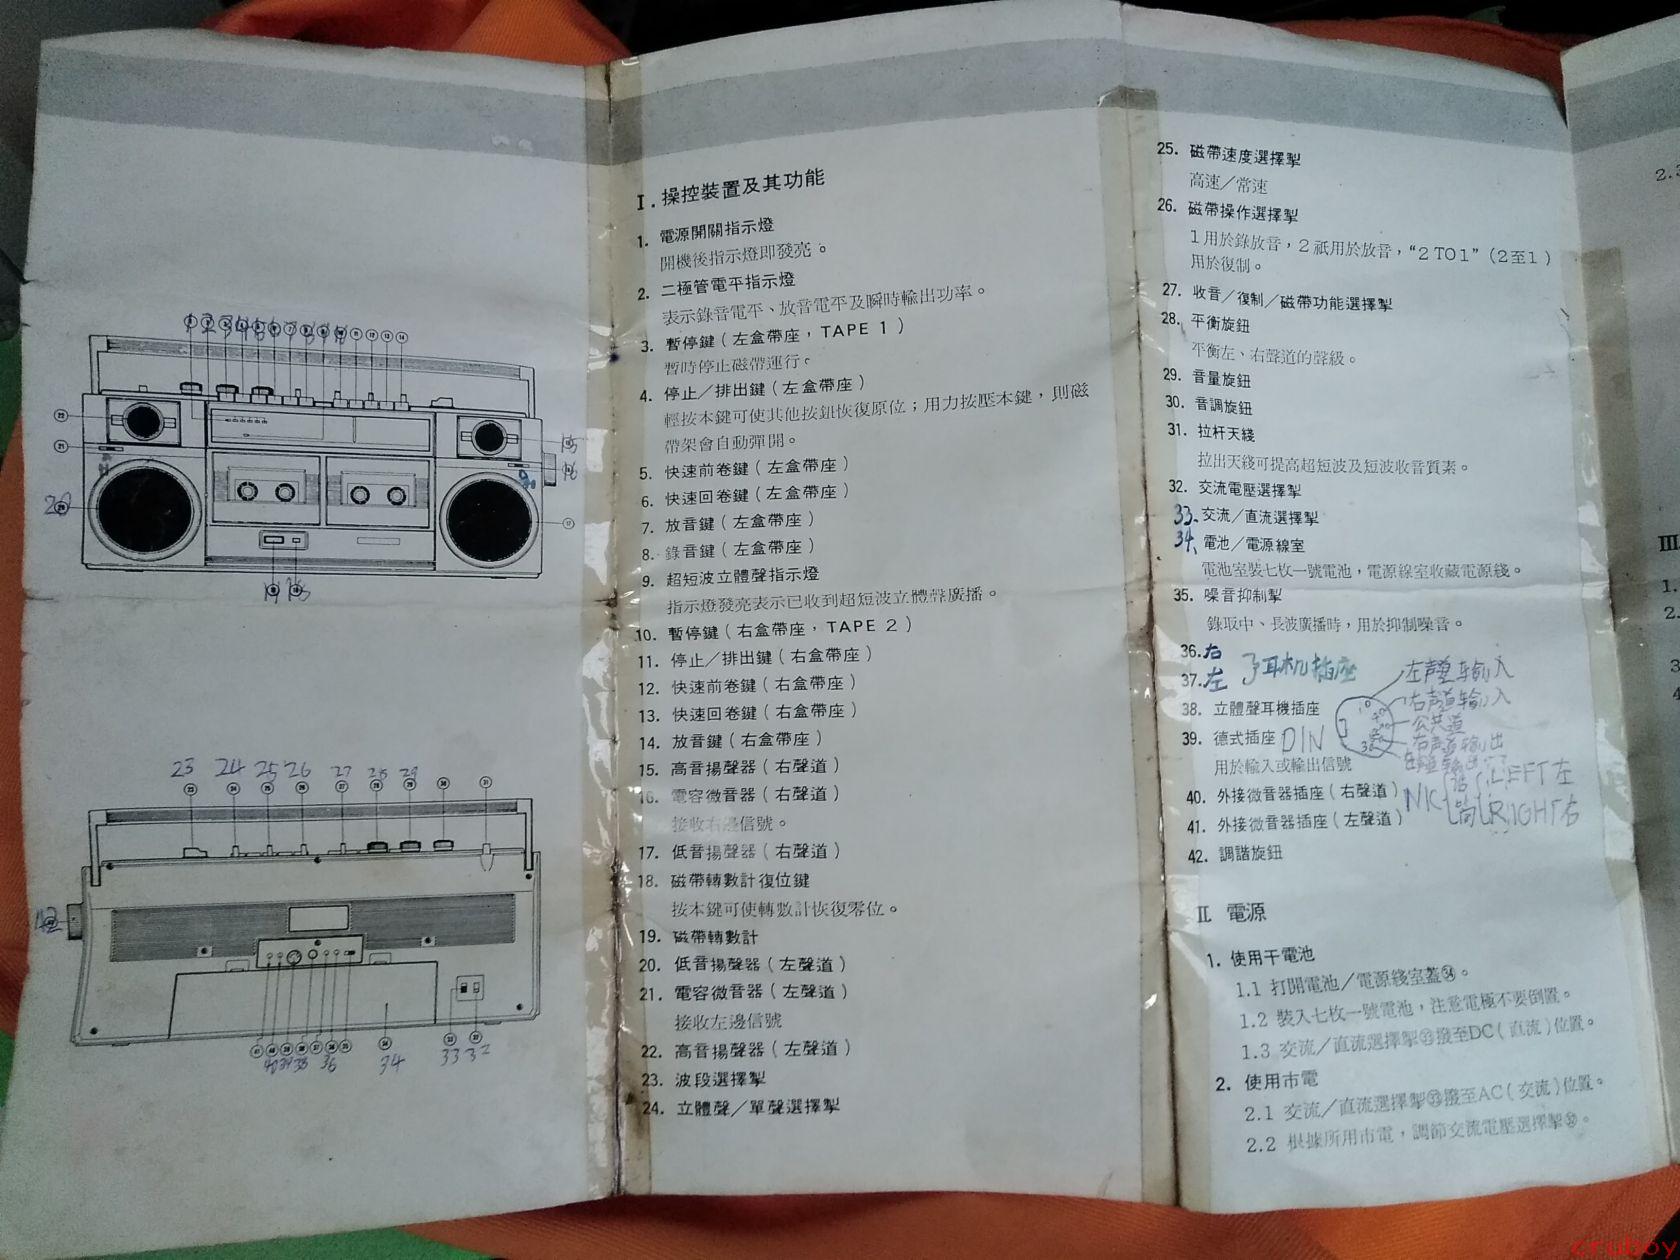 I. 操控裝置及其功能
1. 電源開關指示燈
開機後指示燈即發亮。
2. 二極管電平指示燈
表示錄音電平、放音電平及瞬時輸出功率。
3. 暫停鍵(左盒帶座,TAPE 1)
暫時停止磁帶運行。
4. 停止/排出鍵(左盒帶座)
輕按本鍵可使其他按鈕恢復原位;用力按壓本鍵,則磁
帶架會自動彈開。
5. 快速前卷鍵(左盒帶座)
6. 快速回卷鍵(左盒帶座)
7. 放音鍵(左盒帶座)
8. 錄音鍵(左盒帶座)
9. 超短波立體聲指示燈
指示燈發亮表示已收到超短波立體聲廣播。
10. 暫停鍵(右盒帶座,TAPE 2)
11. 停止/排出鍵(右盒帶座)
12. 快速前卷鍵(右盒帶座)
13. 快速回卷鍵(右盒帶座)
14. 放音鍵(右盒帶座)
15. 高音揚聲器(右聲道)
16. 電容微音器(右聲道)
接收右邊信號。
17. 低音揚聲器(右聲道)
18. 磁帶轉數計復位鍵
按本鍵可使轉數計恢復零位。
19. 磁帶轉數計
20. 低音揚聲器(左聲道)
21. 電容微音器(左聲道)
接收左邊信號
22. 高音揚聲器(左聲道)
23. 波段選擇掣
24. 立體聲/單聲選擇掣
25. 磁帶速度選擇掣
高速/常速
26. 磁帶操作選擇掣
1用於錄放音,2祇用於放音,“2 TO 1”(2至1)
用於復制。
27. 收音/復制/磁帶功能選擇掣
28. 平衡旋鈕
平衡左、右聲道的聲級。
29. 音量旋鈕
30. 音調旋鈕
31. 拉杆天綫
拉出天綫可提高超短波及短波收音質素。
32. 交流電壓選擇掣
33. 交流/直流選擇掣
34. 電池/電源線室
電池室裝七枚一號電池,電源線室收藏電源綫。
35. 噪音抑制掣
錄取中、長波廣播時,用於抑制噪音。
36. 右
37. 左 耳机插座
38. 立體聲耳機插座
39. 德式插座 DIN
用於輸入或輸出信號
左声道输入
右声道输入
公共道
右声道输出
40. 外接微音器插座(右聲道)
LEFT 左
41. 外接微音器插座(左聲道)
RIGHT 右
42. 調諧旋鈕
II 電源
1. 使用干電池
1.1 打開電池/電源綫室蓋㉞。
1.2 裝入七枚一號電池,注意電極不要倒置。
1.3 交流/直流選擇掣㉝撥至DC(直流)位置。
2. 使用市電
2.1 交流/直流選擇掣㉝撥至AC(交流)位置。
2.2 根據所用市電,調節交流電壓選擇掣㉜。
23 24 25 26 27 28 29
34 33 32
III.
1.
2.
3
4
cruboy